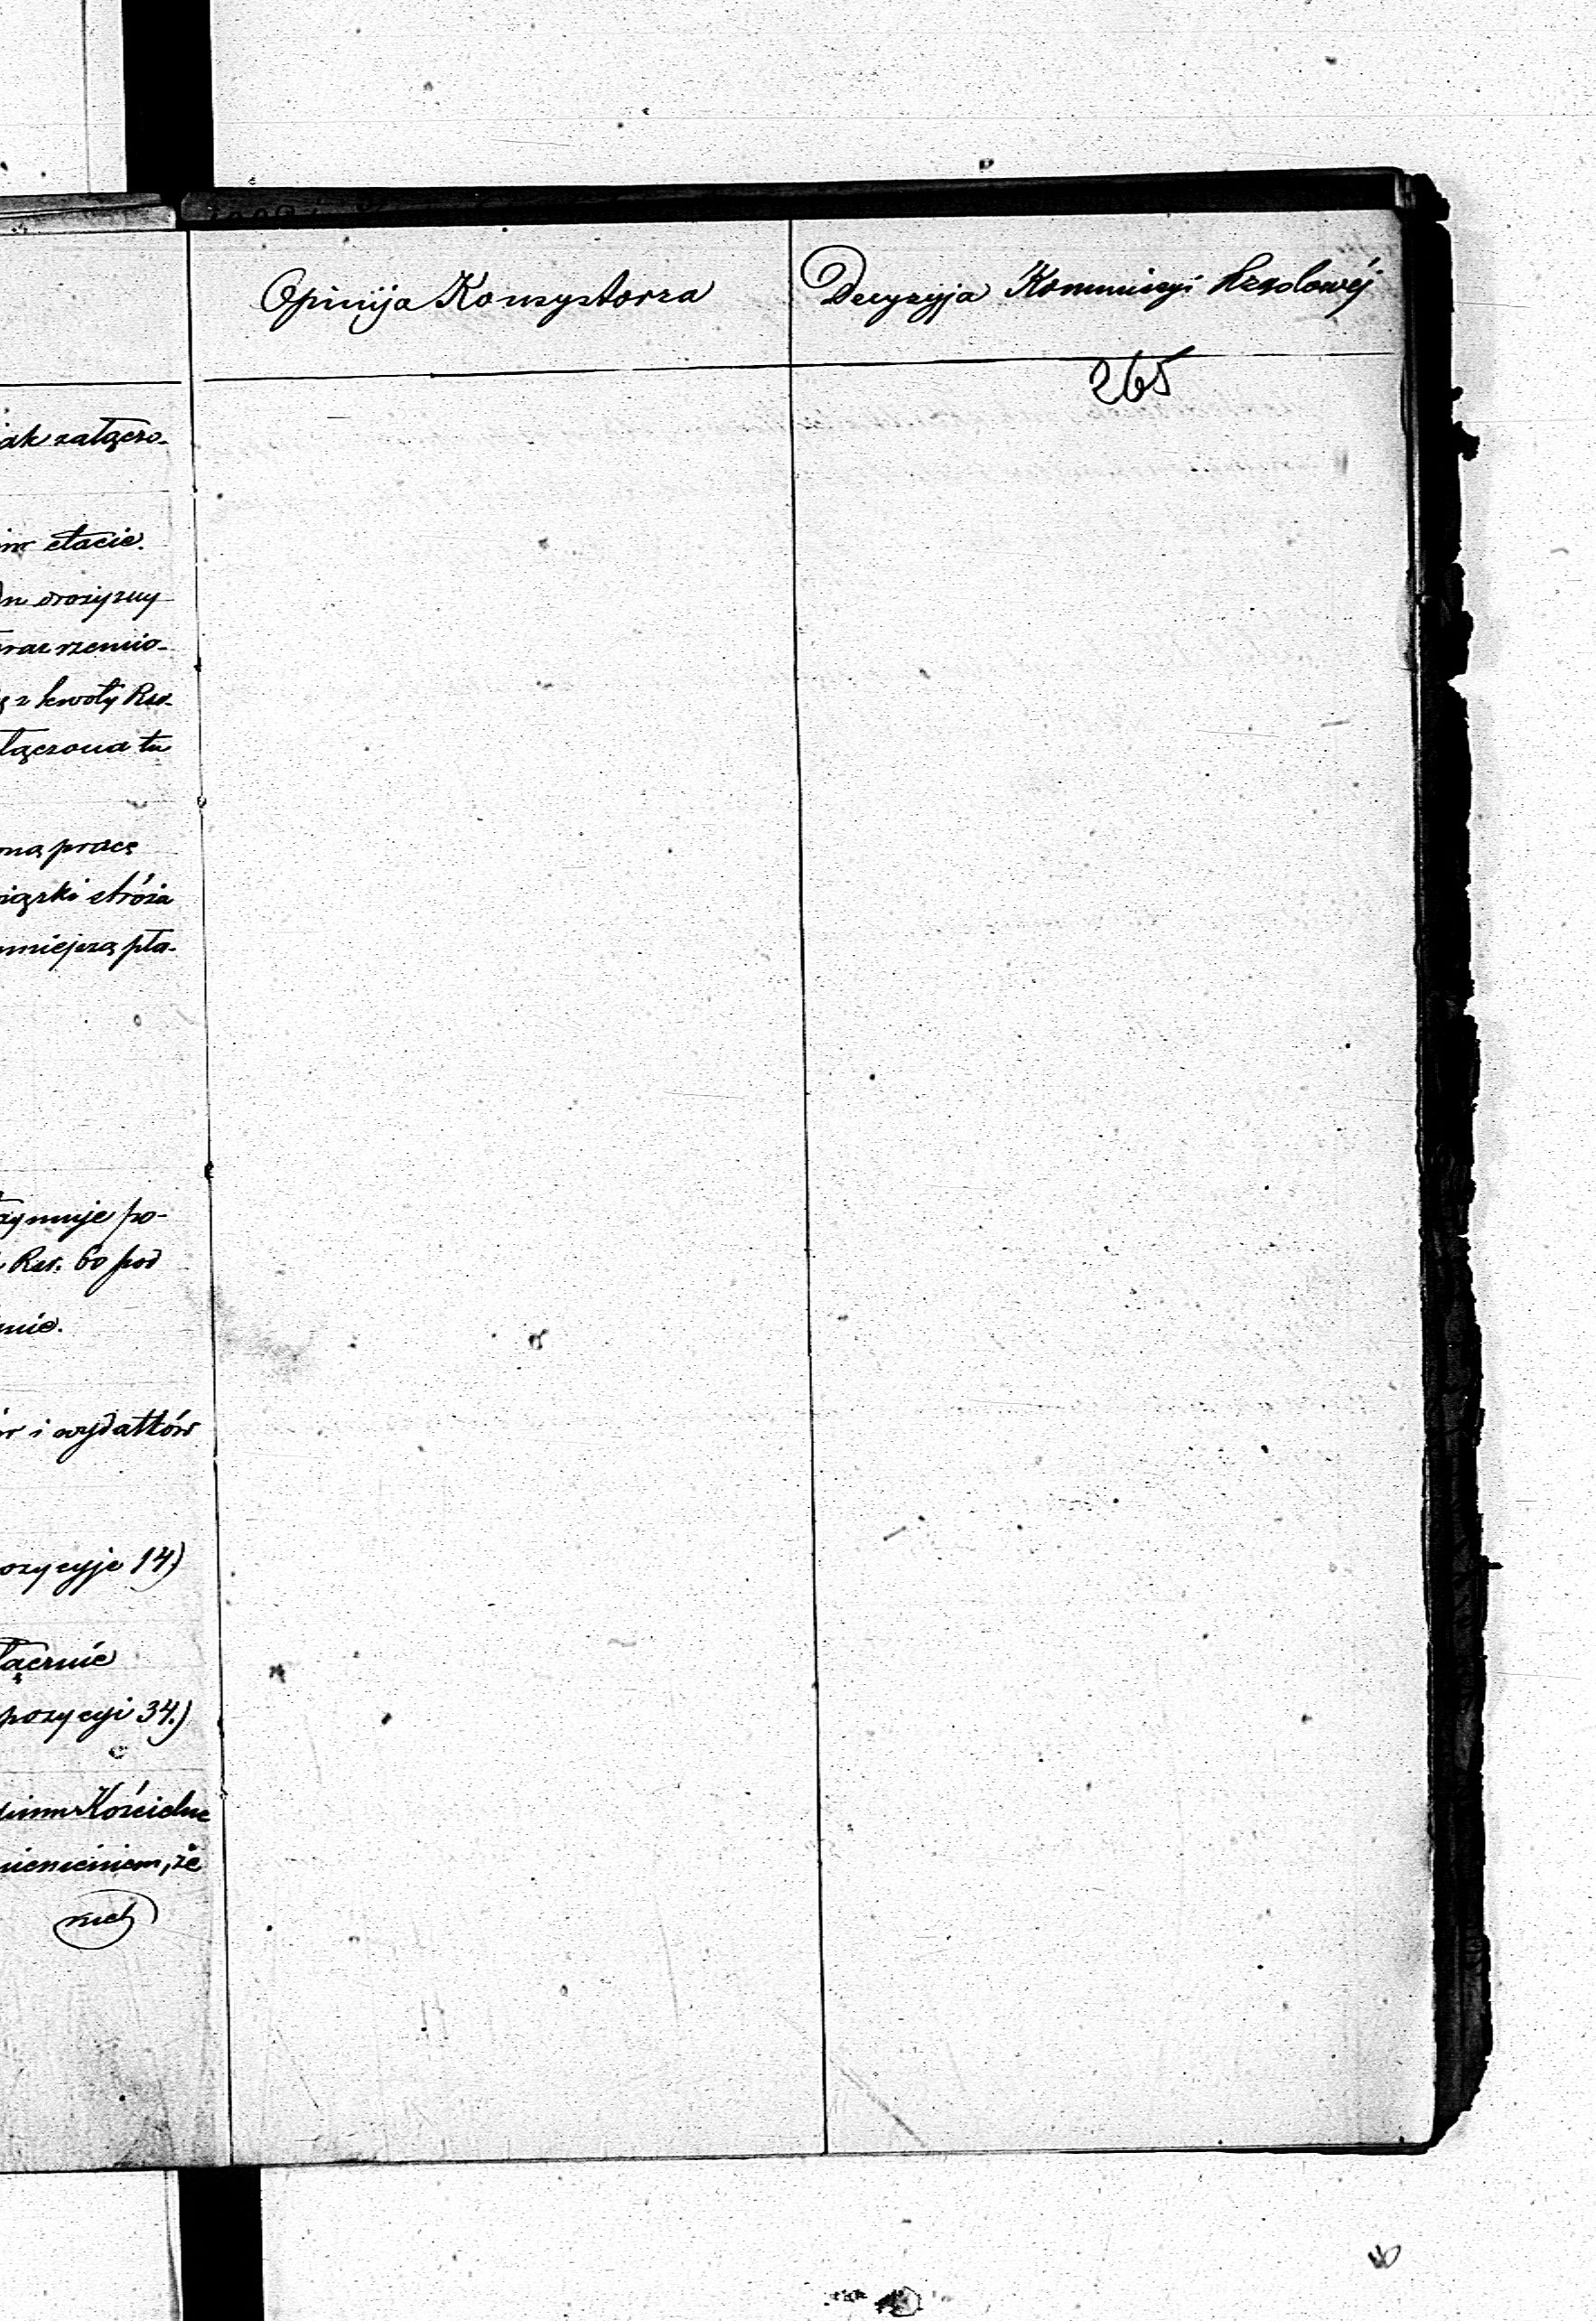 Opinija Konsystorza
Decyzyja Kommissyi Rządowéj
265
ak załączo-
im etacie.
drożyzny
oraz rzemio-
z kwoty Rsr.
łączona tu
ną pracę
iązki stróża
mniejszą pła-
zymuje po-
Rsr. 60 pod
nie.
w i wydatków
ozycyje 14)
łącznie
pozycyi 34.)
Kościelne
nieniem, że